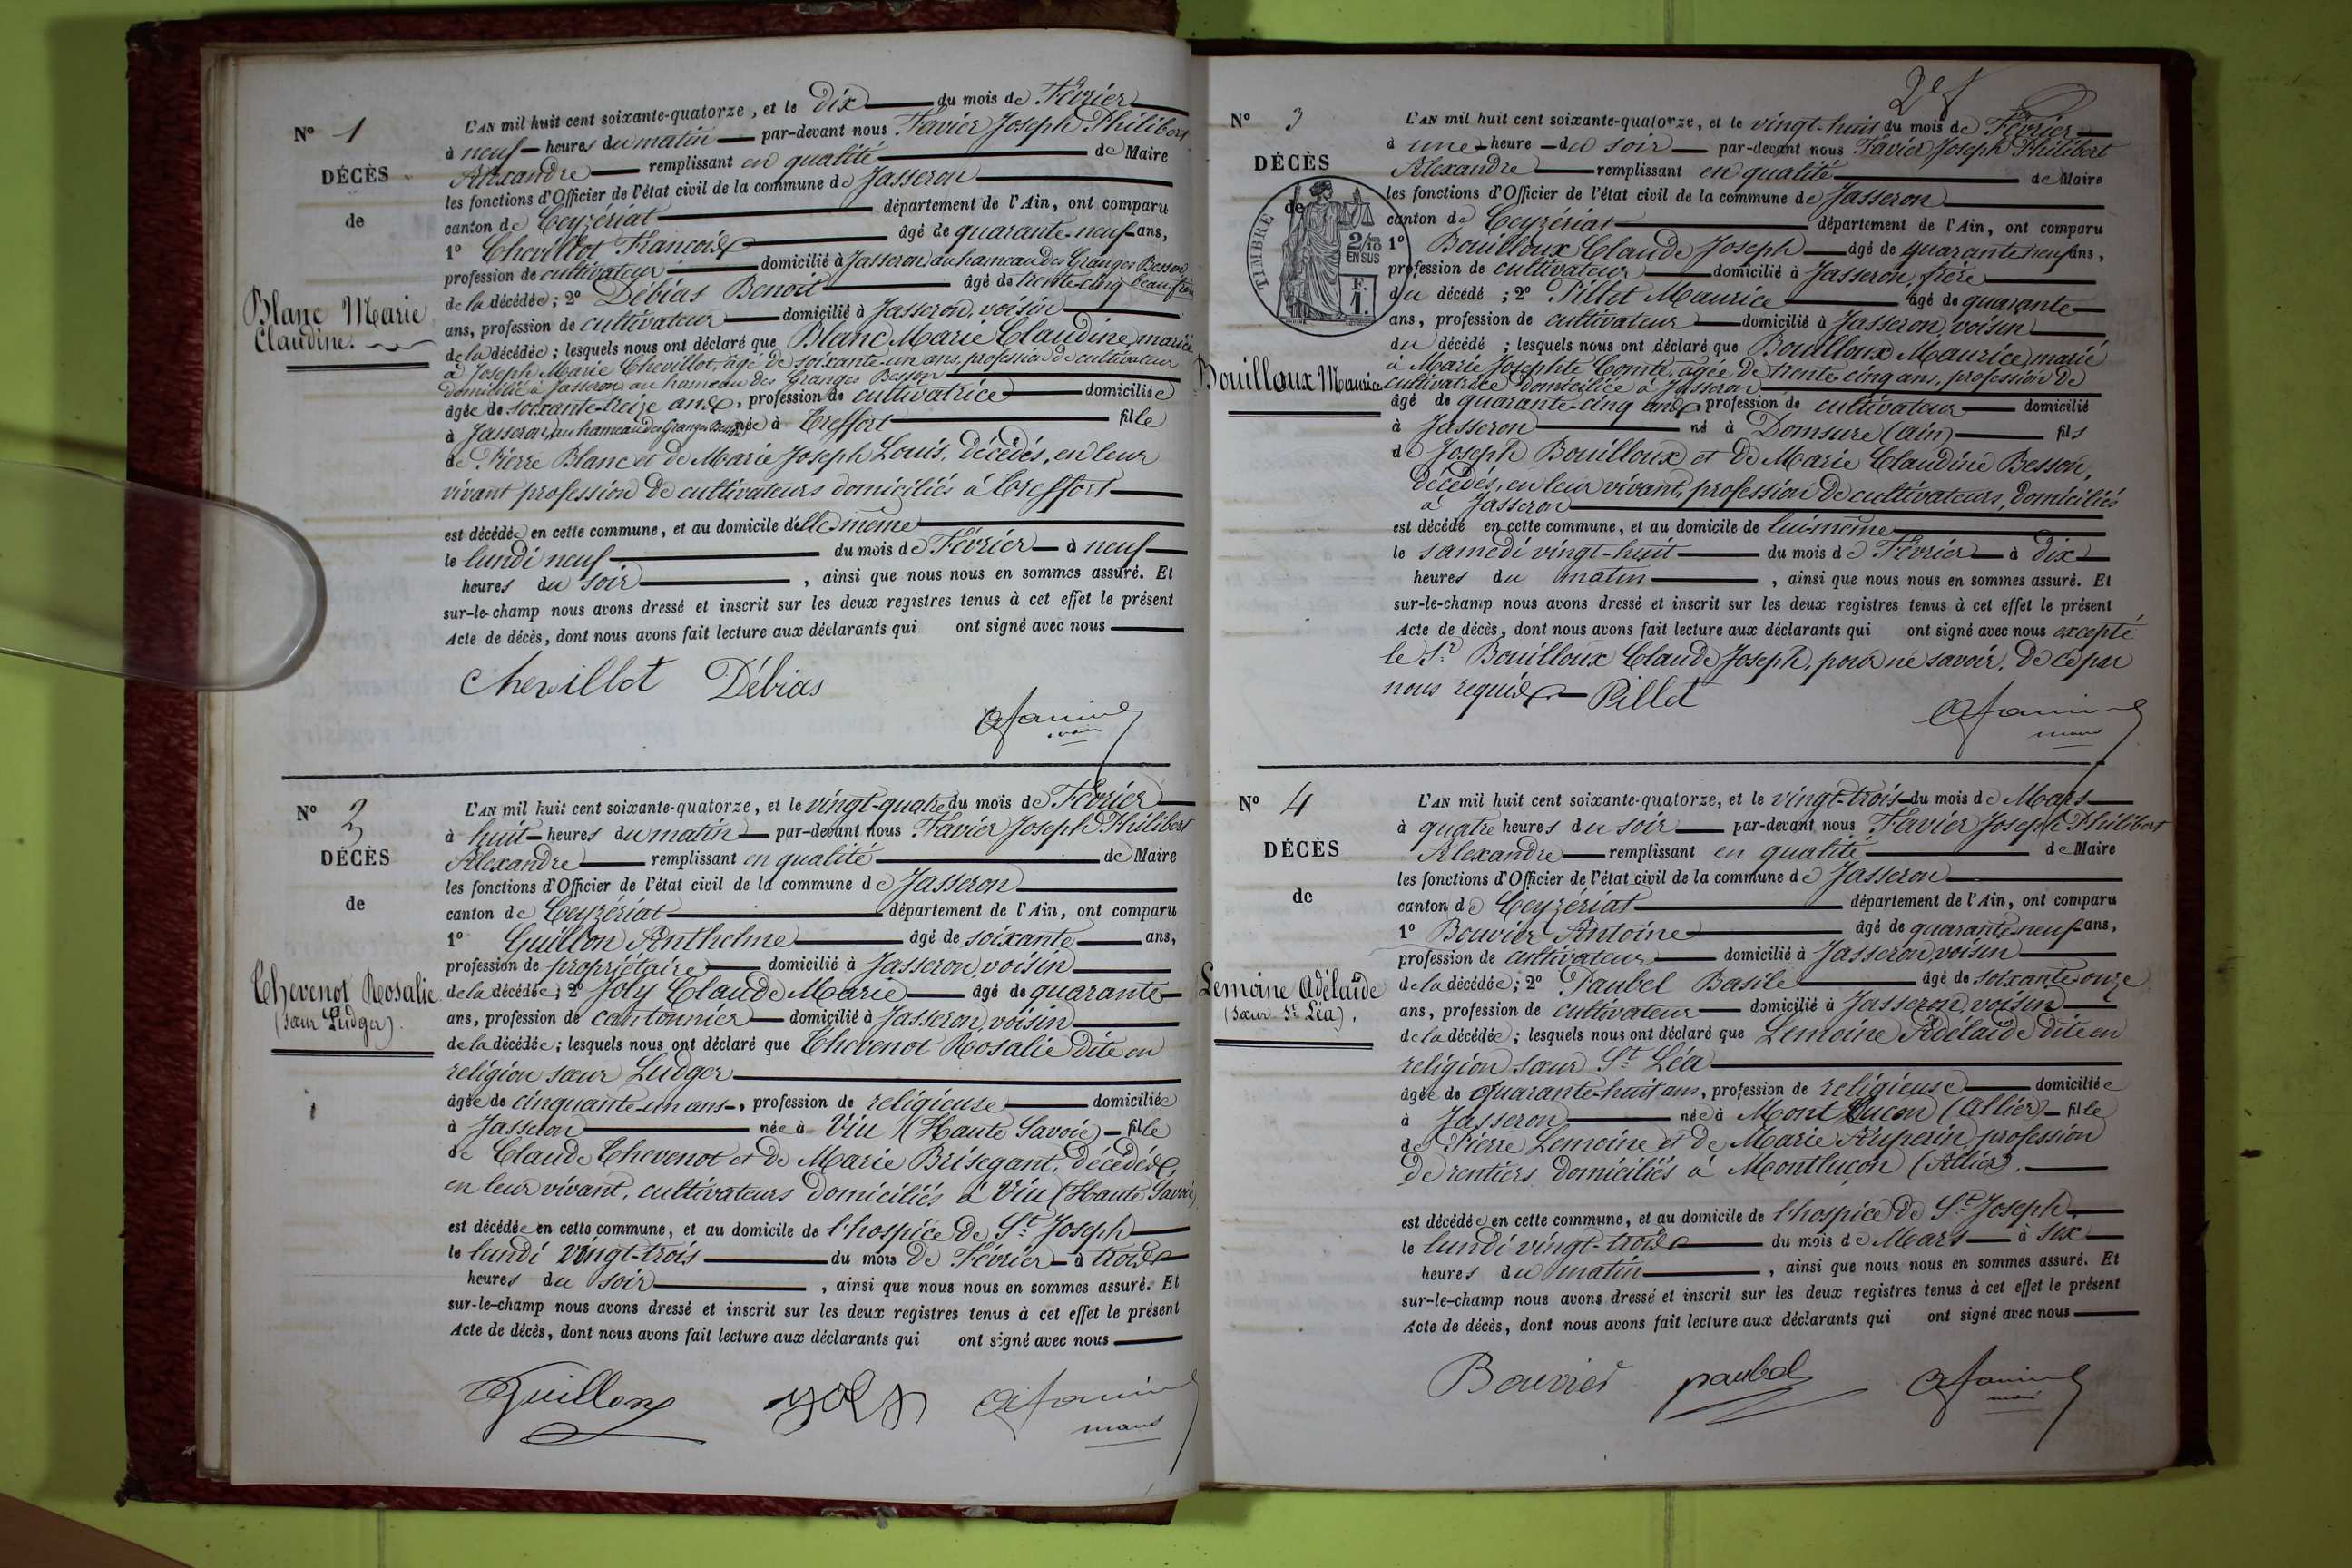 N° 1
DÉCÈS
de
Blanc Marie
Claudine.
L'AN mil huit cent soixante-quatorze, et le Dix du mois de Février
à neuf heures du matin par-devant nous Favier Joseph Philibert
Alexandre remplissant en qualité de Maire
les fonctions d'Officier de l'état civil de la commune de Jasseron
canton de Ceyzériat département de l'Ain, ont comparu
1° Chevillot François âgé de quarante-neuf ans,
profession de cultivateur domicilié à Jasseron au hameau des Granges Besson beau-frère
de la décédée; 2° Débias Benoit âgé de trente-cinq
ans, profession de cultivateur domicilié à Jasseron, voisin
de la décédée; lesquels nous ont déclaré que Blanc Marie Claudine, mariée
à Joseph Marie Chevillot, âgé de soixante-un ans, profession de cultivateur
domicilié à Jasseron au hameau des Granges Besson
âgée de soixante-treize ans, profession de cultivatrice domiciliée
à Jasseron, au hameau des Granges Besson née à Treffort fille
de Pierre Blanc et de Marie Joseph Louis, décédés, en leur
vivant profession de cultivateurs domiciliés à Treffort
est décédée en cette commune, et au domicile d'elle même
le lundi neuf du mois de Février à neuf
heures du soir, ainsi que nous nous en sommes assuré. Et
sur-le-champ nous avons dressé et inscrit sur les deux registres tenus à cet effet le présent
Acte de décès, dont nous avons fait lecture aux déclarants qui ont signé avec nous
Chevillot Débias
N° 2
DÉCÈS
de
Chevenot Rosalie
(sœur Ludger).
L'AN mil huit cent soixante-quatorze, et le vingt-quatre du mois de Février
à huit heures du matin par-devant nous Favier Joseph Philibert
Alexandre remplissant en qualité de Maire
les fonctions d'Officier de l'état civil de la commune de Jasseron
canton de Ceyzériat département de l'Ain, ont comparu
1° Guillon Anthelme âgé de soixante ans,
profession de propriétaire domicilié à Jasseron, voisin
de la décédée; 2° Joly Claude Marie âgé de quarante
ans, profession de cantonnier domicilié à Jasseron, voisin
de la décédée; lesquels nous ont déclaré que Chevenot Rosalie dite en
religion sœur Ludger
âgée de cinquante-un ans, profession de religieuse domiciliée
à Jasseron née à Viu (Haute Savoie) fille
de Claude Chevenot et de Marie Brisegant, décédés,
en leur vivant, cultivateurs domiciliés à Viu (Haute Savoie)
est décédée en cette commune, et au domicile de l'hospice de St Joseph
le lundi vingt-trois du mois de Février à trois
heures du soir, ainsi que nous nous en sommes assuré. Et
sur-le-champ nous avons dressé et inscrit sur les deux registres tenus à cet effet le présent
Acte de décès, dont nous avons fait lecture aux déclarants qui ont signé avec nous
Guillon Joly
maire
2e f
N° 3
DÉCÈS
de
TIMBRE
2/10 EN SUS
F. 1.
Bouilloux Maurice
L'AN mil huit cent soixante-quatorze, et le vingt-huit du mois de Février
à une heure du soir par-devant nous Favier Joseph Philibert
Alexandre remplissant en qualité de Maire
les fonctions d'Officier de l'état civil de la commune de Jasseron
canton de Ceyzériat département de l'Ain, ont comparu
1° Bouilloux Claude Joseph âgé de quarante neuf ans,
profession de cultivateur domicilié à Jasseron, frère
du décédé; 2° Pillet Maurice âgé de quarante
ans, profession de cultivateur domicilié à Jasseron, voisin
du décédé; lesquels nous ont déclaré que Bouilloux Maurice, marié
à Marie Josephte Comte, âgée de trente-cinq ans, profession de
cultivatrice domiciliée à Jasseron
âgé de quarante-cinq ans profession de cultivateur domicilié
à Jasseron né à Domsure (ain) fils
de Joseph Bouilloux et de Marie Claudine Besson,
décédés, en leur vivant, profession de cultivateurs, domiciliés
à Jasseron
est décédé en cette commune, et au domicile de lui-même
le samedi vingt-huit du mois de Février à dix
heures du matin, ainsi que nous nous en sommes assuré. Et
sur-le-champ nous avons dressé et inscrit sur les deux registres tenus à cet effet le présent
Acte de décès, dont nous avons fait lecture aux déclarants qui ont signé avec nous excepté
le Sr Bouilloux Claude Joseph, pour ne savoir, de ce par
nous requis Pillet
maire
N° 4
DÉCÈS
de
Lemoine Adélaïde
(sœur St Léa).
L'AN mil huit cent soixante-quatorze, et le vingt-trois du mois de Mars
à quatre heures du soir par-devant nous Favier Joseph Philibert
Alexandre remplissant en qualité de Maire
les fonctions d'Officier de l'état civil de la commune de Jasseron
canton de Ceyzériat département de l'Ain, ont comparu
1° Bouvier Antoine âgé de quarante neuf ans,
profession de cultivateur domicilié à Jasseron, voisin
de la décédée; 2° Paubel Basile âgé de soixante onze
ans, profession de cultivateur domicilié à Jasseron, voisin
de la décédée; lesquels nous ont déclaré que Lemoine Adélaïde dite en
religion sœur St Léa
âgée de quarante-huit ans, profession de religieuse domiciliée
à Jasseron née à Mont Luçon (Allier) fille
de Pierre Lemoine et de Marie Ruperin profession
de rentiers domiciliés à Montluçon (Allier).
est décédée en cette commune, et au domicile de l'hospice de St Joseph
le lundi vingt-trois du mois de Mars à six
heures du matin, ainsi que nous nous en sommes assuré. Et
sur-le-champ nous avons dressé et inscrit sur les deux registres tenus à cet effet le présent
Acte de décès, dont nous avons fait lecture aux déclarants qui ont signé avec nous
Bouvier paubel